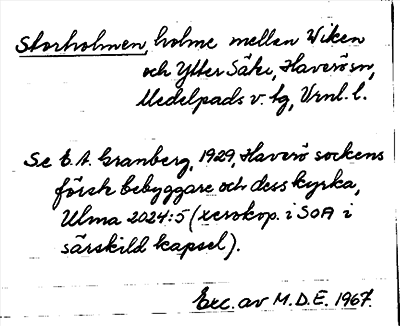 Storholmen, holme mellan Wiken
och Ytter Säke, Haverö sn,
Medelpads v. tg, Vrnl. l.
Se E. A. Granberg, 1929, Haverö sockens
förste bebyggare och dess kyrka,
Ulma 2024:5 (xerokop. i SOA i
särskild kapsel).
Exc. av M.D.E. 1967.